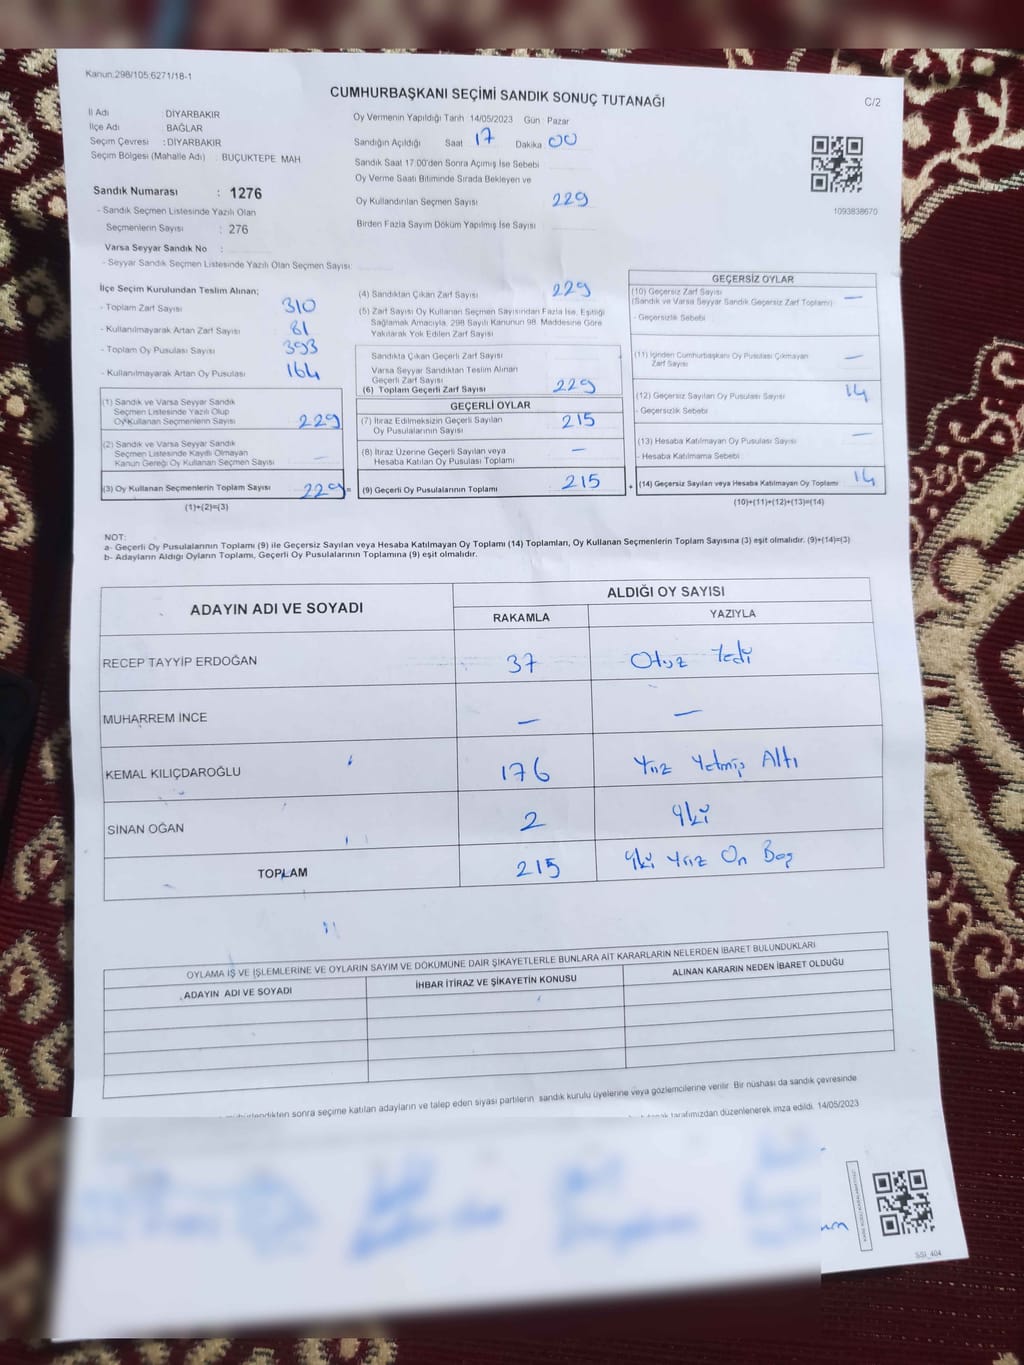 Kanun:298/105;6271/18-1
CUMHURBAŞKANI SEÇİMİ SANDIK SONUÇ TUTANAĞI
C/2
İl Adı DİYARBAKIR
İlçe Adı BAĞLAR
Seçim Çevresi : DİYARBAKIR
Seçim Bölgesi (Mahalle Adı) : BUÇUKTEPE MAH
Sandık Numarası : 1276
- Sandık Seçmen Listesinde Yazılı Olan
Seçmenlerin Sayısı : 276
Varsa Seyyar Sandık No :
- Seyyar Sandık Seçmen Listesinde Yazılı Olan Seçmen Sayısı
Oy Vermenin Yapıldığı Tarih 14/05/2023 Gün Pazar
Sandığın Açıldığı Saat 17 Dakika 00
Sandık Saat 17:00'den Sonra Açımış İse Sebebi
Oy Verme Saati Bitiminde Sırada Bekleyen ve
Oy Kullandırılan Seçmen Sayısı 229
Birden Fazla Sayım Döküm Yapılmış İse Sayısı
1093838670
İlçe Seçim Kurulundan Teslim Alınan;
- Toplam Zarf Sayısı 310
- Kullanılmayarak Artan Zarf Sayısı 81
- Toplam Oy Pusulası Sayısı 393
- Kullanılmayarak Artan Oy Pusulası 164
(1) Sandık ve Varsa Seyyar Sandık
Seçmen Listesinde Yazılı Olup
Oy Kullanan Seçmenlerin Sayısı 229
(2) Sandık ve Varsa Seyyar Sandık
Seçmen Listesinde Kayıtlı Olmayan
Kanun Gereği Oy Kullanan Seçmen Sayısı –
(3) Oy Kullanan Seçmenlerin Toplam Sayısı 229 =
(1)+(2)=(3)
(4) Sandıktan Çıkan Zarf Sayısı 229
(5) Zarf Sayısı Oy Kullanan Seçmen Sayısından Fazla İse, Eşitliği
Sağlamak Amacıyla, 298 Sayılı Kanunun 98. Maddesine Göre
Yakılarak Yok Edilen Zarf Sayısı
Sandıkta Çıkan Geçerli Zarf Sayısı
Varsa Seyyar Sandıktan Teslim Alınan
Geçerli Zarf Sayısı
(6) Toplam Geçerli Zarf Sayısı 229
GEÇERLİ OYLAR
(7) İtiraz Edilmeksizin Geçerli Sayılan
Oy Pusulalarının Sayısı 215
(8) İtiraz Üzerine Geçerli Sayılan veya
Hesaba Katılan Oy Pusulası Toplamı –
(9) Geçerli Oy Pusulalarının Toplamı 215 +
GEÇERSİZ OYLAR
(10) Geçersiz Zarf Sayısı
(Sandık ve Varsa Seyyar Sandık Geçersiz Zarf Toplamı) –
- Geçersizlik Sebebi
(11) İçinden Cumhurbaşkanı Oy Pusulası Çıkmayan
Zarf Sayısı –
(12) Geçersiz Sayılan Oy Pusulası Sayısı 14
- Geçersizlik Sebebi
(13) Hesaba Katılmayan Oy Pusulası Sayısı –
- Hesaba Katılmama Sebebi
(14) Geçersiz Sayılan veya Hesaba Katılmayan Oy Toplamı 14
(10)+(11)+(12)+(13)=(14)
NOT:
a- Geçerli Oy Pusulalarının Toplamı (9) ile Geçersiz Sayılan veya Hesaba Katılmayan Oy Toplamı (14) Toplamları, Oy Kullanan Seçmenlerin Toplam Sayısına (3) eşit olmalıdır. (9)+(14)=(3)
b- Adayların Aldığı Oyların Toplamı, Geçerli Oy Pusulalarının Toplamına (9) eşit olmalıdır.
ADAYIN ADI VE SOYADI ALDIĞI OY SAYISI
RAKAMLA YAZIYLA
RECEP TAYYİP ERDOĞAN 37 Otuz Yedi
MUHARREM İNCE – –
KEMAL KILIÇDAROĞLU 176 Yüz Yetmiş Altı
SİNAN OĞAN 2 İki
TOPLAM 215 İki Yüz On Beş
OYLAMA İŞ VE İŞLEMLERİNE VE OYLARIN SAYIM VE DÖKÜMÜNE DAİR ŞİKAYETLERLE BUNLARA AİT KARARLARIN NELERDEN İBARET BULUNDUKLARI
ADAYIN ADI VE SOYADI İHBAR İTİRAZ VE ŞİKAYETİN KONUSU ALINAN KARARIN NEDEN İBARET OLDUĞU
sonra seçime katılan adayların ve talep eden siyasi partilerin sandık kurulu üyelerine veya gözlemcilerine verilir. Bir nüshası da sandık çevresinde
tarafımızdan düzenlenerek imza edildi. 14/05/2023
SSI_404